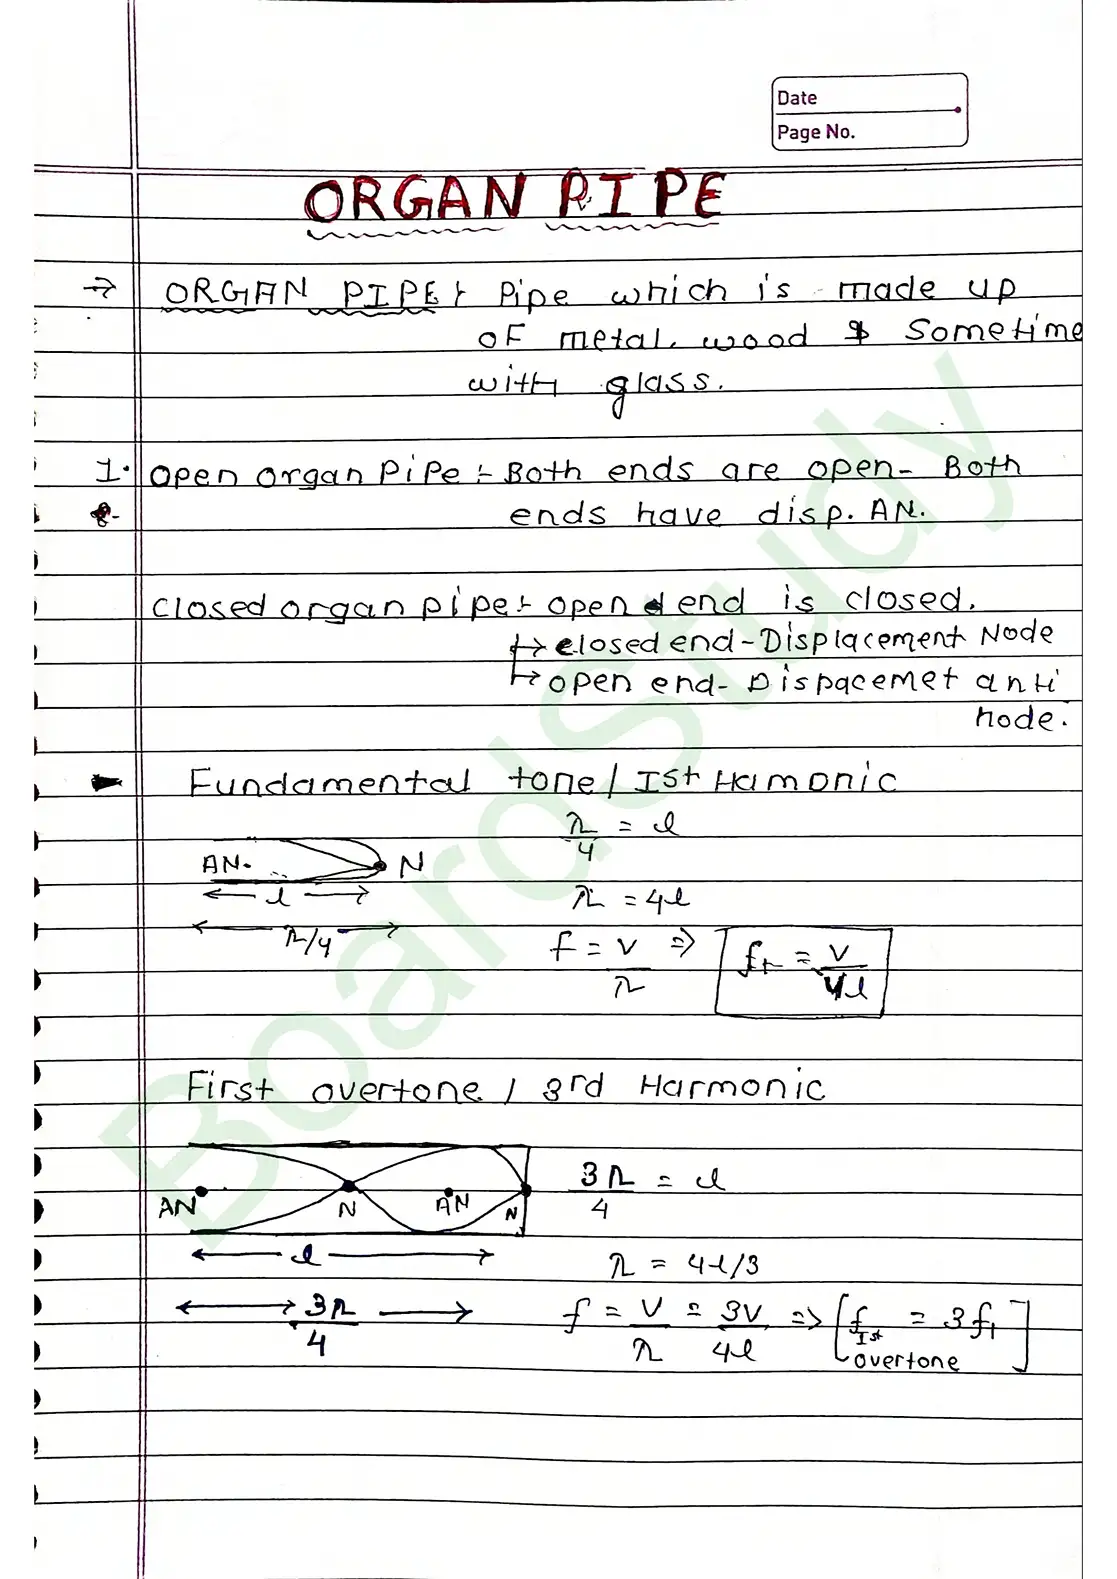 Date
Page No.
ORGAN PIPE
→ ORGAN PIPE :- Pipe which is made up
of metal, wood & sometime
with glass.
1. open organ pipe :- Both ends are open - Both
ends have disp. AN.
closed organ pipe :- open end is closed.
↳ closed end - Displacement Node
↳ open end - Dispacemet anti
node.
Fundamental tone / Ist Hamonic
λ/4 = l
AN. N
l
λ = 4l
λ/4
f = v/λ ⇒ f₁ = v/4l
First overtone / 3rd Harmonic
3λ/4 = l
AN N AN N
l
λ = 4l/3
3λ/4
f = v/λ = 3v/4l ⇒ [f Ist overtone = 3f₁]
BoardStudy